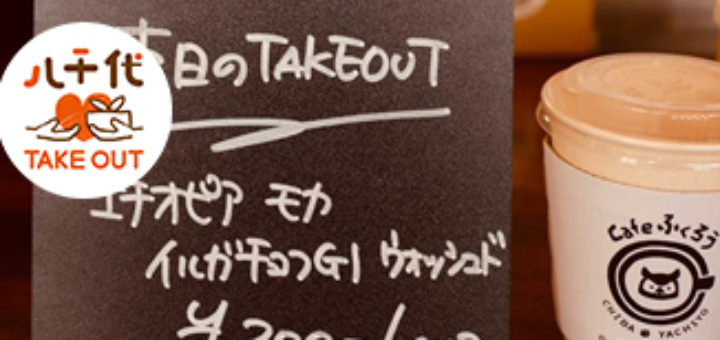 八千代
TAKE OUT
本日のTAKEOUT
エチオピア モカ
イルガチョフG1 ウォッシュド
Cafe ふくろう
CHIBA YACHIYO